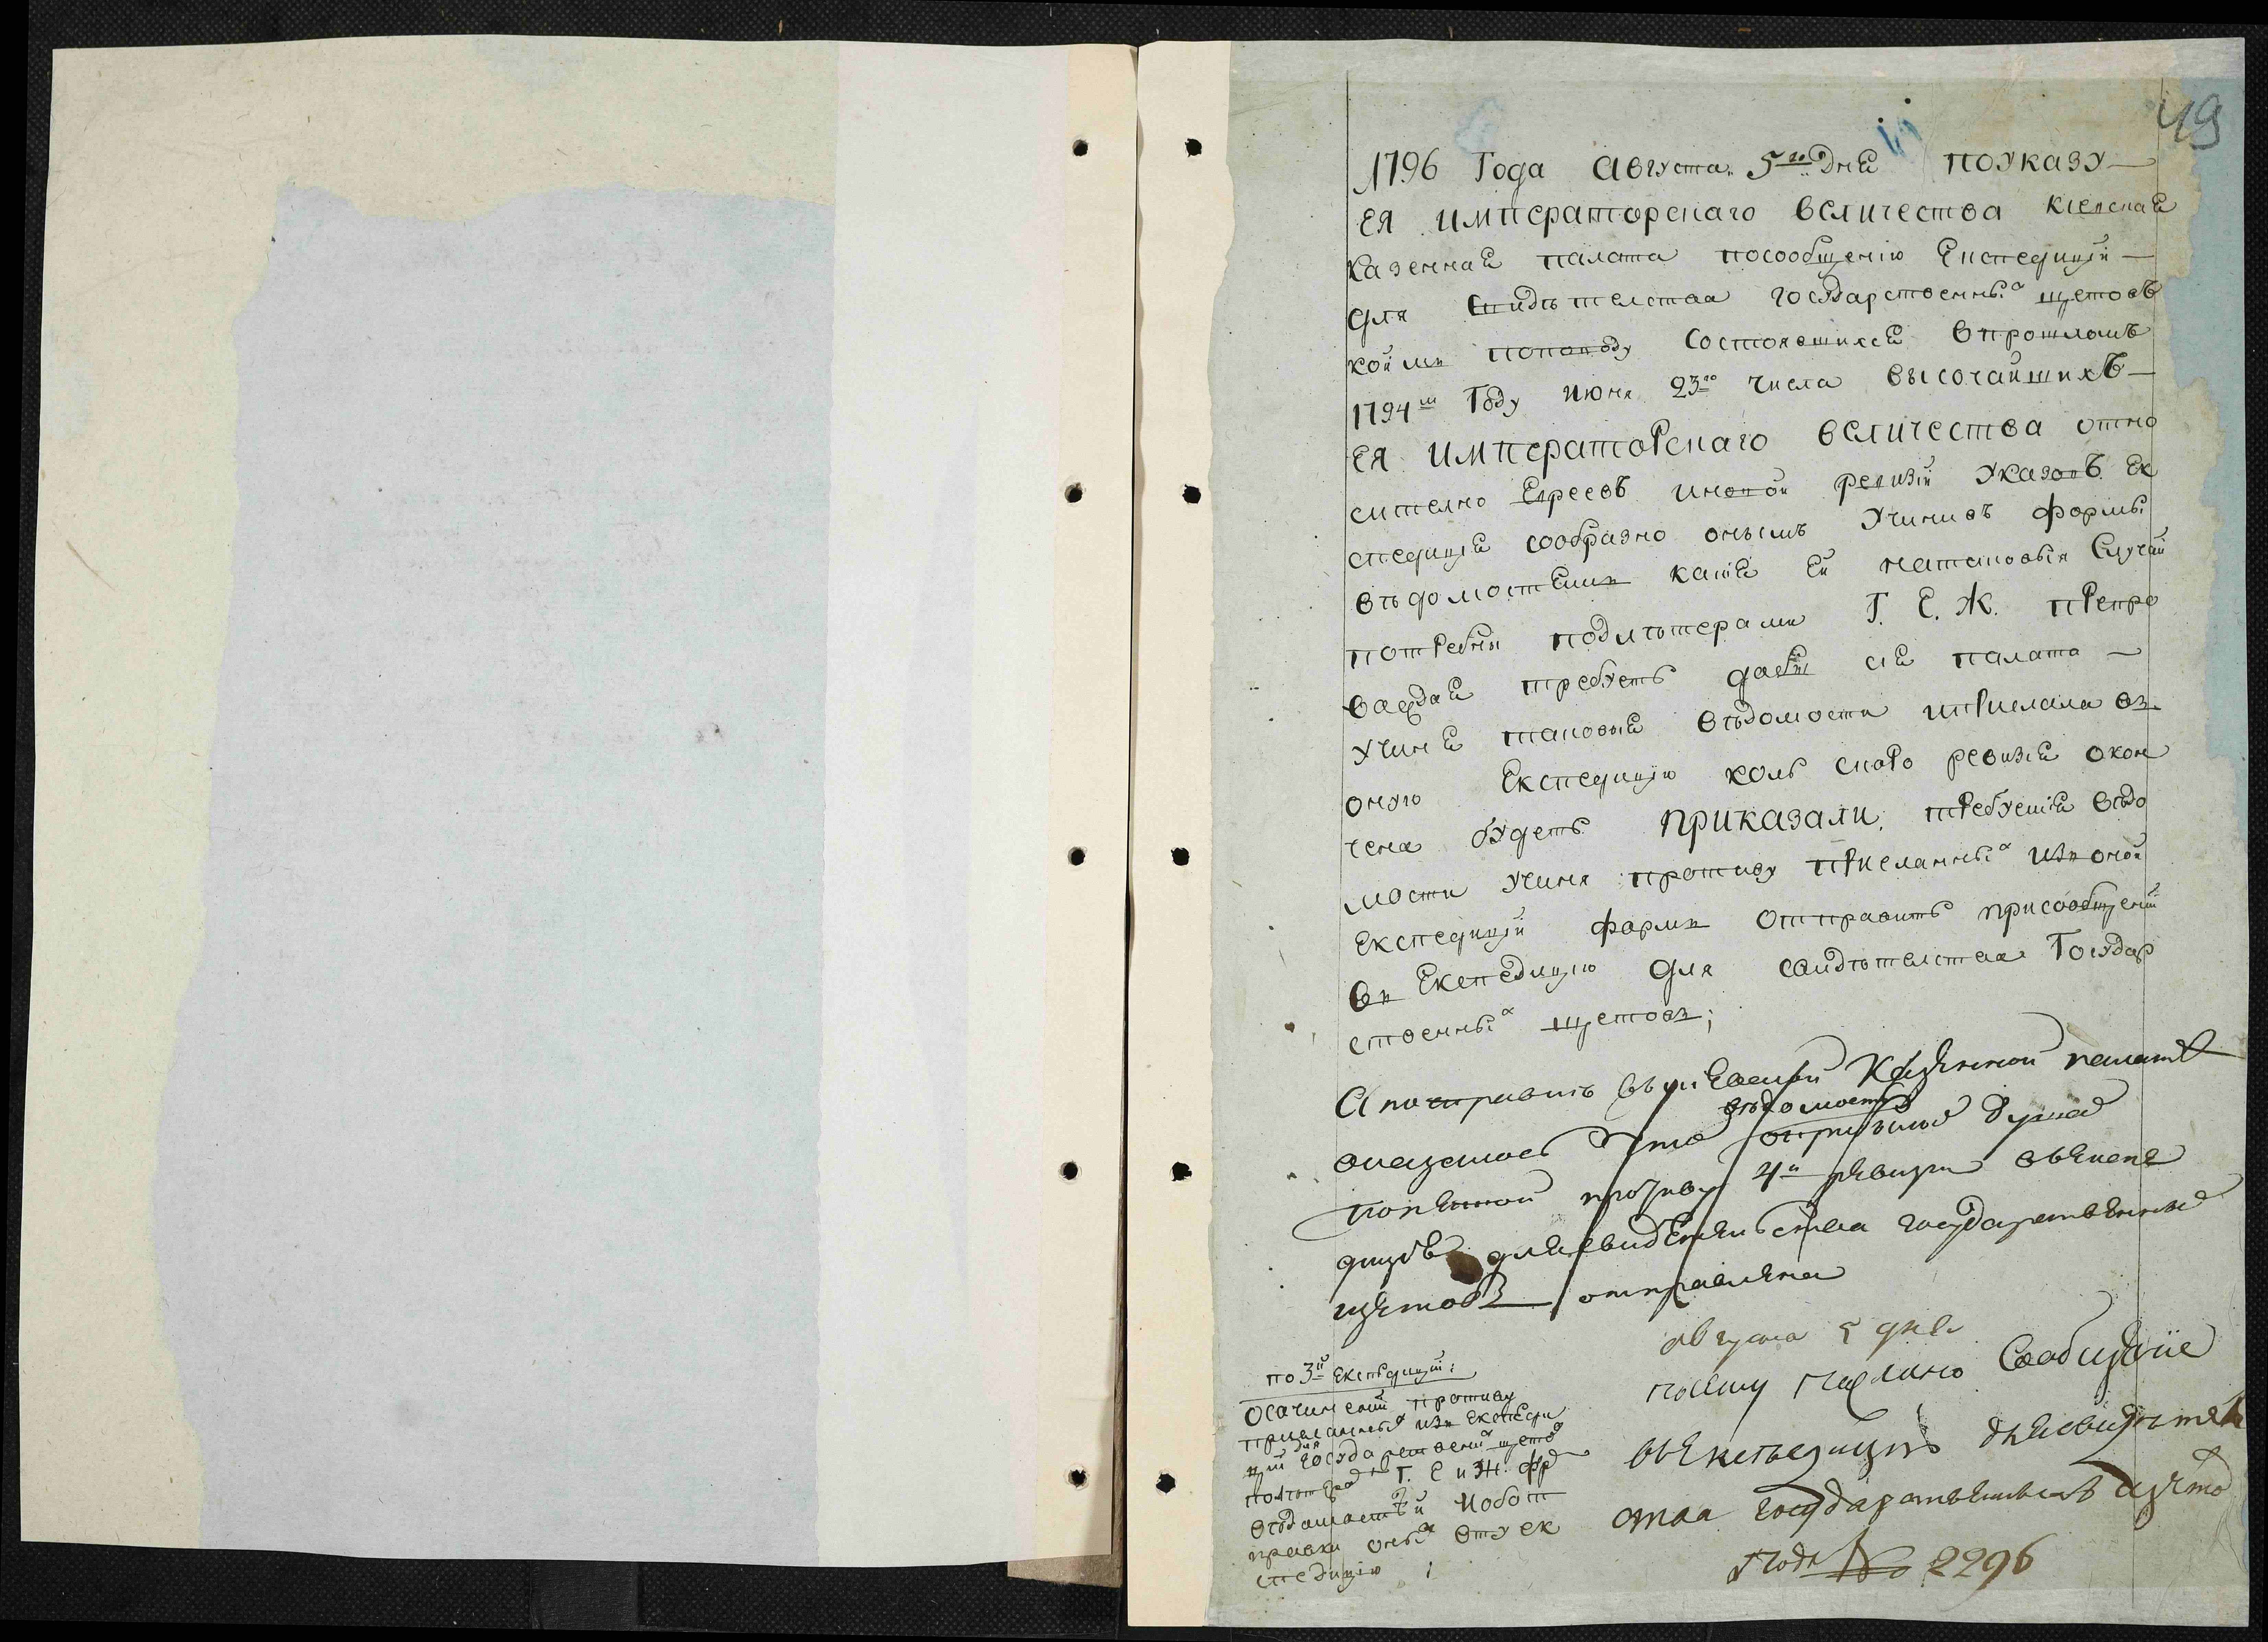 49
1796 Года Августа 5го дня поуказу
ЕЯ императорскаго величества киевская
казенная палата посообщенію Експедицїи
для свидѣтелства государственныхъ щетовъ
коїми поповоду состоявшихся впрошломъ
1794м Году июня 23го числа высочайшихъ
ЕЯ императорскаго величества отно
сително Евреевъ иновой ревизїи Указовъ Ек
спедиція сообразно онымъ Учинивъ формы
вѣдомостямъ какія ей натаковыя Случаи
потребни подлѣтерами Г. Е. Ж. препро
вождая требуетъ дабы сія палата
Учиня таковыя вѣдомости прислала въ
оную Експедицію коль скоро ревизія окон
чена будетъ приказали: требуемія вѣдо
мости Учиня противу присланныхъ изъ оной
Експедицїи формъ отправить присообщенїи
въ Експедицію для свидѣтелства Государ
ственныхъ щетовъ;
А посправкѣ въкиевской казенной палатѣ
оказалось что
вѣдомость
противу 4й ревизіи въекспе
дицію длясвидѣтельства государственныхъ
щетовъ отправлена
августа 5 дня
посему Сообщенїе
въекспедицїю длясвидѣтель
ства государственныхъ щето
подъ № 2296
по 3й Експедиціи:
Осочиненїи противу
присланныхъ изъ Експеди
цїи для государственных щето
полѣтерамъ Г. Е и Ж. фор
вѣдомостей иобот
правки оныхъ втуек
спедицію ;